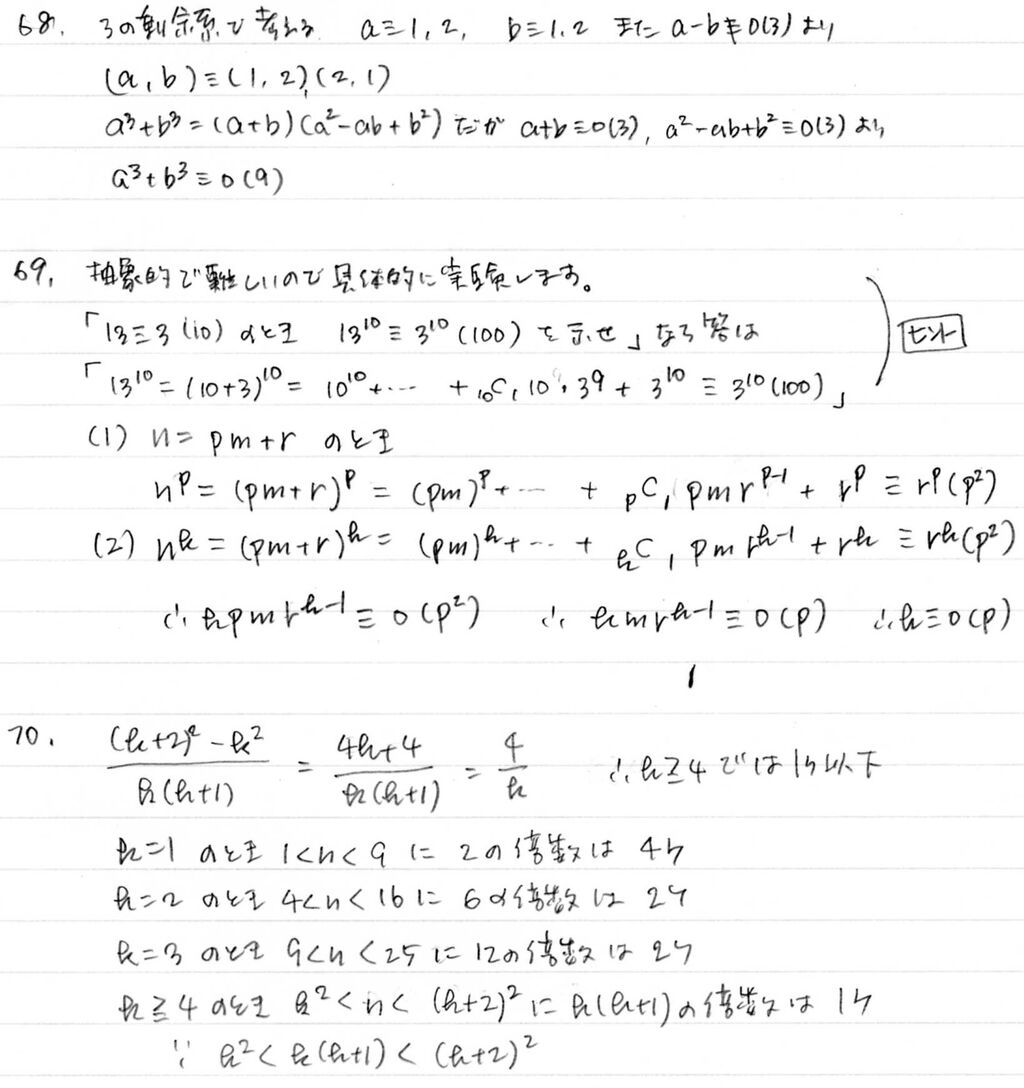 68. 3の剰余系で考える a≡1, 2, b≡1, 2 また a-b≢0(3) より
(a, b)≡(1, 2), (2, 1)
a³+b³=(a+b)(a²-ab+b²) だが a+b≡0(3), a²-ab+b²≡0(3) より
a³+b³≡0(9)
69. 抽象的で難しいので具体的に実験します。
「13≡3 (10) のとき 13¹⁰≡3¹⁰(100) を示せ」なら答は
「13¹⁰=(10+3)¹⁰= 10¹⁰+… + ₁₀C₁ 10・3⁹ + 3¹⁰ ≡ 3¹⁰(100)」
ヒント
(1) n= pm+r のとき
nᵖ=(pm+r)ᵖ = (pm)ᵖ+… + ₚC₁ pmrᵖ⁻¹ + rᵖ ≡ rᵖ(p²)
(2) nᵏ=(pm+r)ᵏ= (pm)ᵏ+… + ₖC₁ pmrᵏ⁻¹+rᵏ ≡rᵏ(p²)
∴ kpmrᵏ⁻¹≡0(p²) ∴ kmrᵏ⁻¹≡0(p) ∴k≡0(p)
70. ((k+2)²-k²)/(k(k+1)) = (4k+4)/(k(k+1)) = 4/k ∴k≧4では1ケ以下
k=1 のとき 1<n<9 に 2の倍数は 4ケ
k=2 のとき 4<n<16に 6の倍数は 2ケ
k=3 のとき 9<n<25に 12の倍数は 2ケ
k≧4 のとき k²<n< (k+2)²に k(k+1)の倍数は 1ケ
∵ k²< k(k+1)< (k+2)²